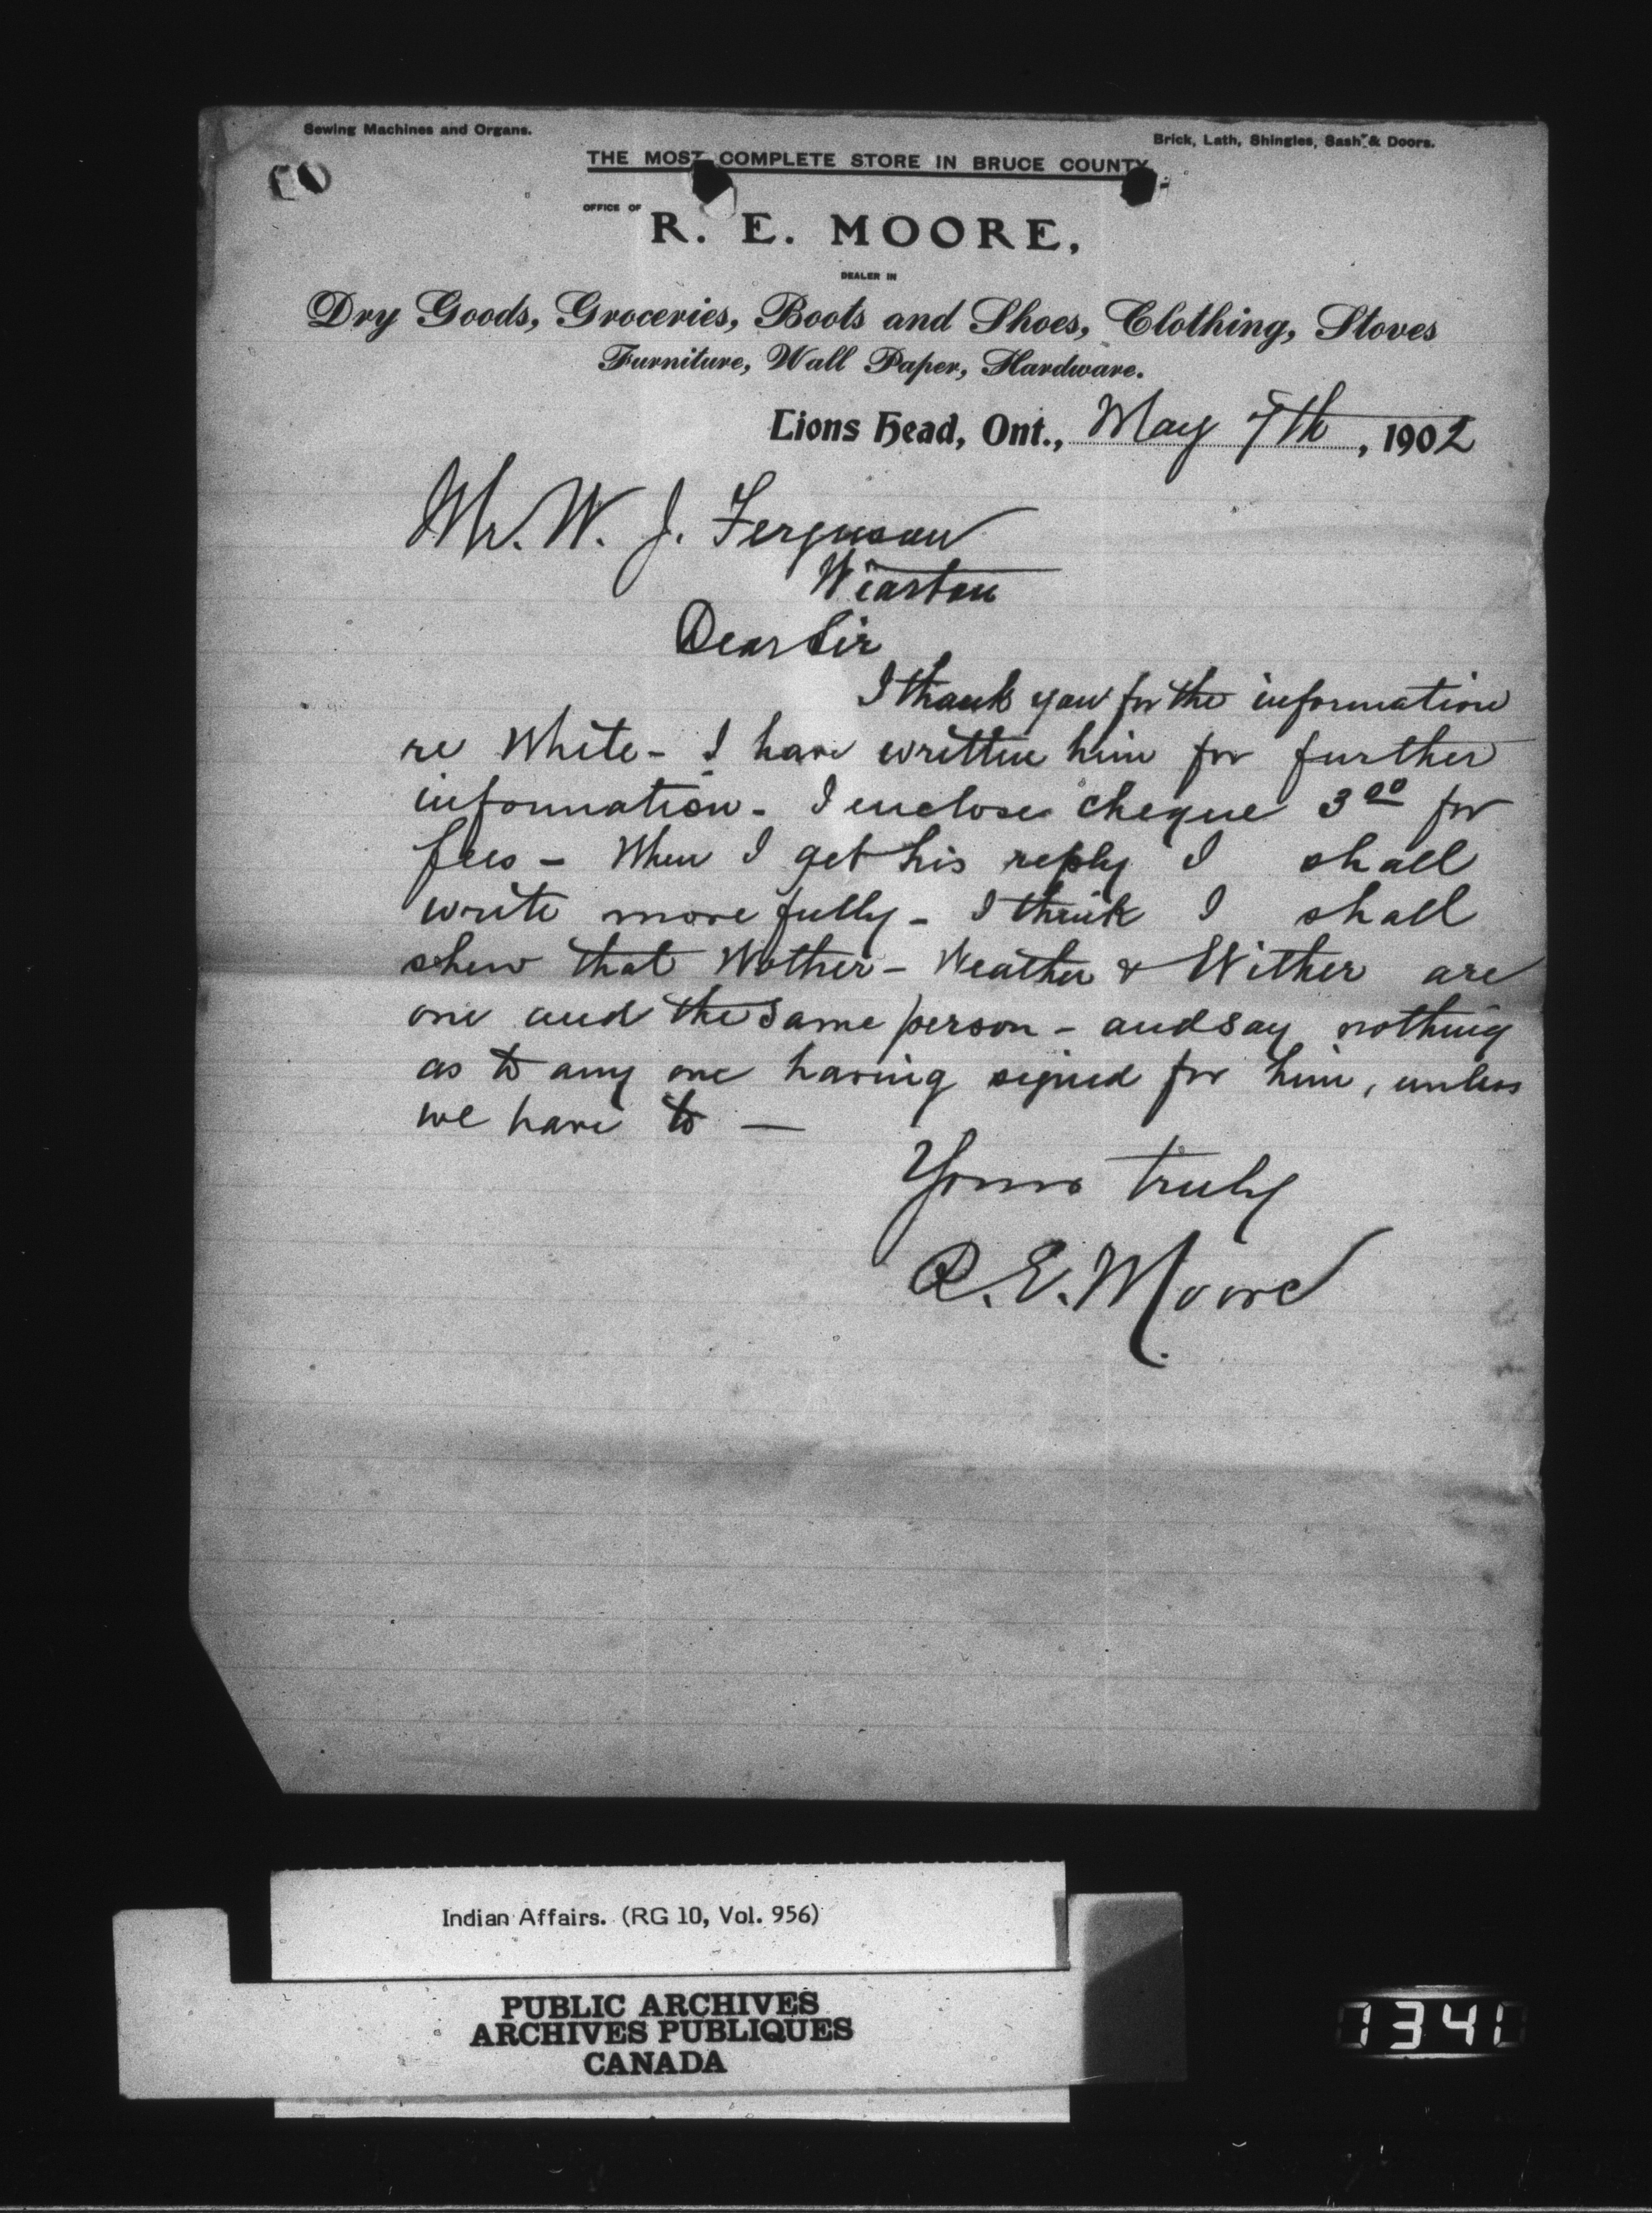 Sewing Machines and Organs.
Brick, Lath, Shingles, Sash & Doors.
THE MOST COMPLETE STORE IN BRUCE COUNTY.
OFFICE OF
R. E. MOORE,
DEALER IN
Dry Goods, Groceries, Boots and Shoes, Clothing, Stoves
Furniture, Wall Paper, Hardware.
Lions Head, Ont., May 7th, 1902
Mr. W. J. Ferguson
Wiarton
Dear Sir
I thank you for the information
re White - I have written him for further
information - I enclose cheque 3.00 for
fees - When I get his reply I shall
write more fully - I think I shall
shew that Wother - Weather & Wither are
one and the same person - and say nothing
as to any one having signed for him, unless
we have to —
Yours truly
R. E. Moore
Indian Affairs. (RG 10, Vol. 956)
PUBLIC ARCHIVES
ARCHIVES PUBLIQUES
CANADA
1341